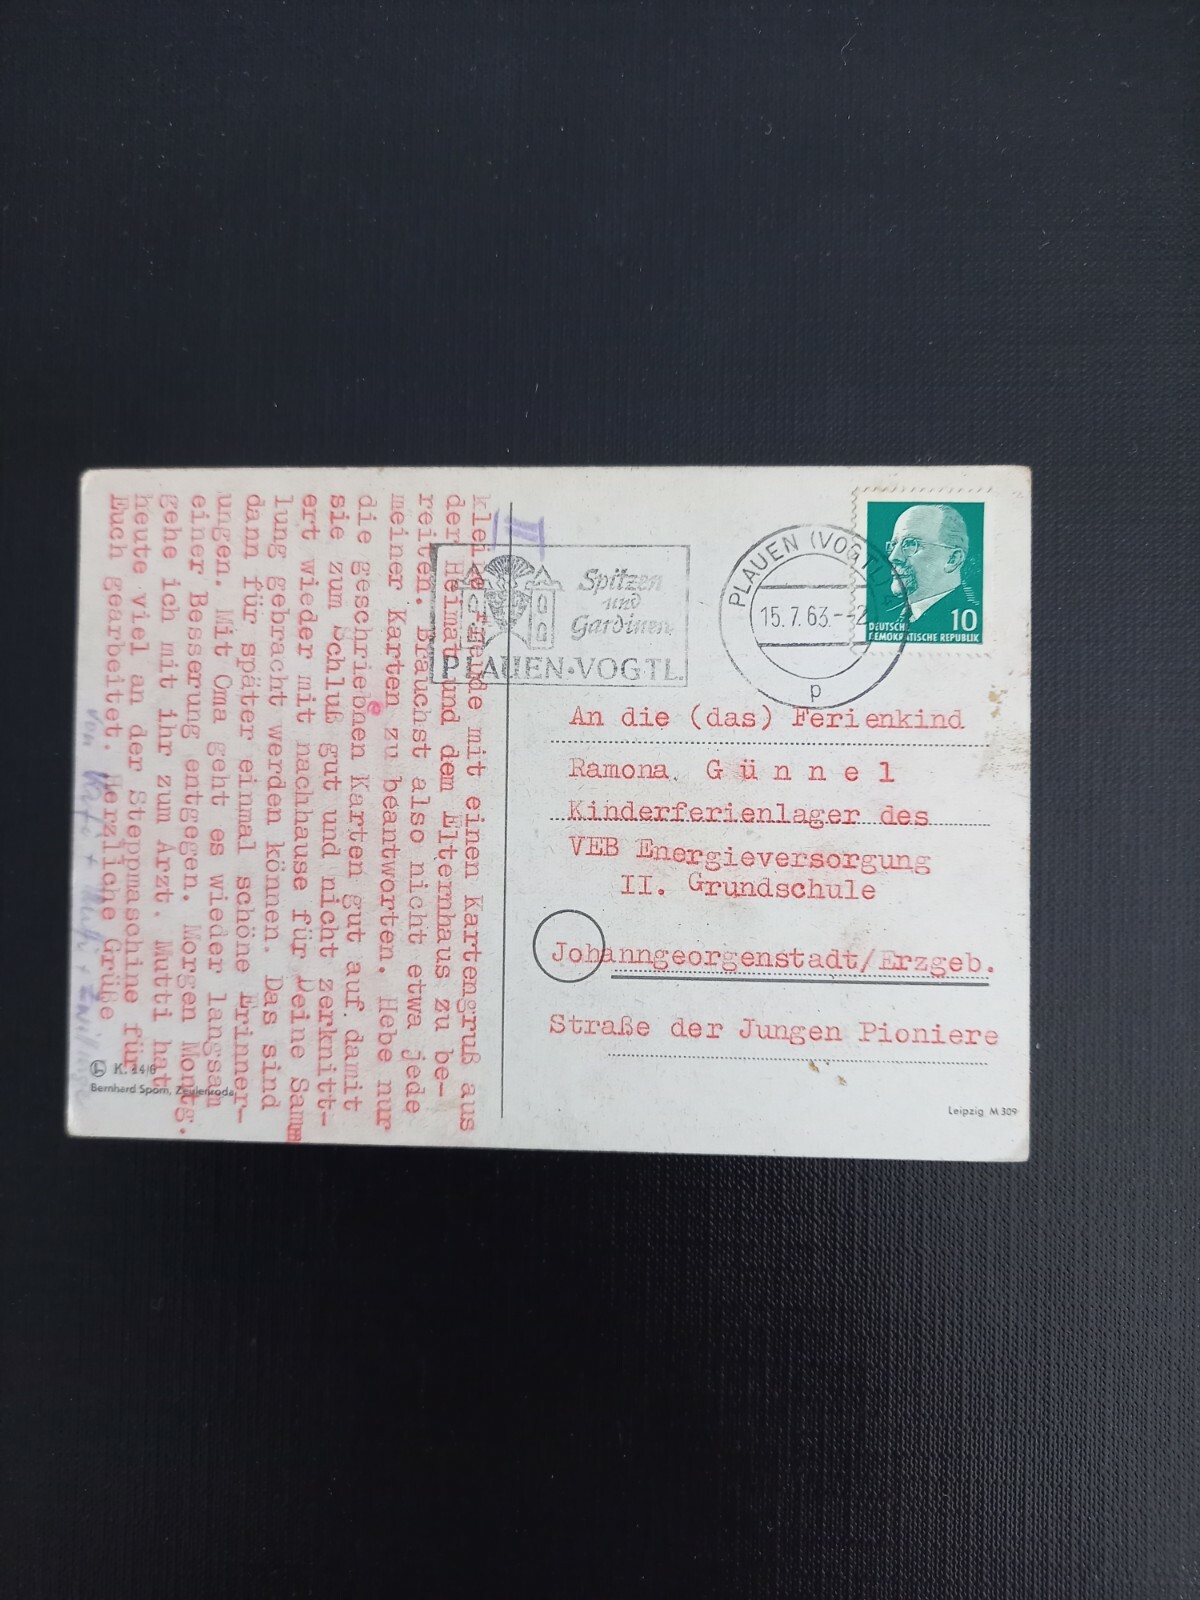 II
kleine Freude mit einen Kartengruß aus
der Heimat und dem Elternhaus zu be-
reiten. Brauchst also nicht etwa jede
meiner Karten zu beantworten. Hebe nur
die geschriebnen Karten gut auf. damit
sie zum Schluß gut und nicht zerknitt-
ert wieder mit nachhause für Deine Samm
lung gebracht werden können. Das sind
dann für später einmal schöne Erinner-
ungen. Mit Oma geht es wieder langsam
einer Besserung entgegen. Morgen Montg.
gehe ich mit ihr zum Arzt. Mutti hat
heute viel an der Steppmaschine für
Euch gearbeitet. Herzliche Grüße
von
K. 
Bernhard Sporn, Zeulenroda
Spitzen
und
Gardinen
PLAUEN·VOGTL.
PLAUEN (VOGTL)
15.7.63.-
p
10
DEUTSCHE
DEMOKRATISCHE REPUBLIK
An die (das) Ferienkind
Ramona G ü n n e l
Kinderferienlager des
VEB Energieversorgung
II. Grundschule
Johanngeorgenstadt/Erzgeb.
Straße der Jungen Pioniere
Leipzig M 309